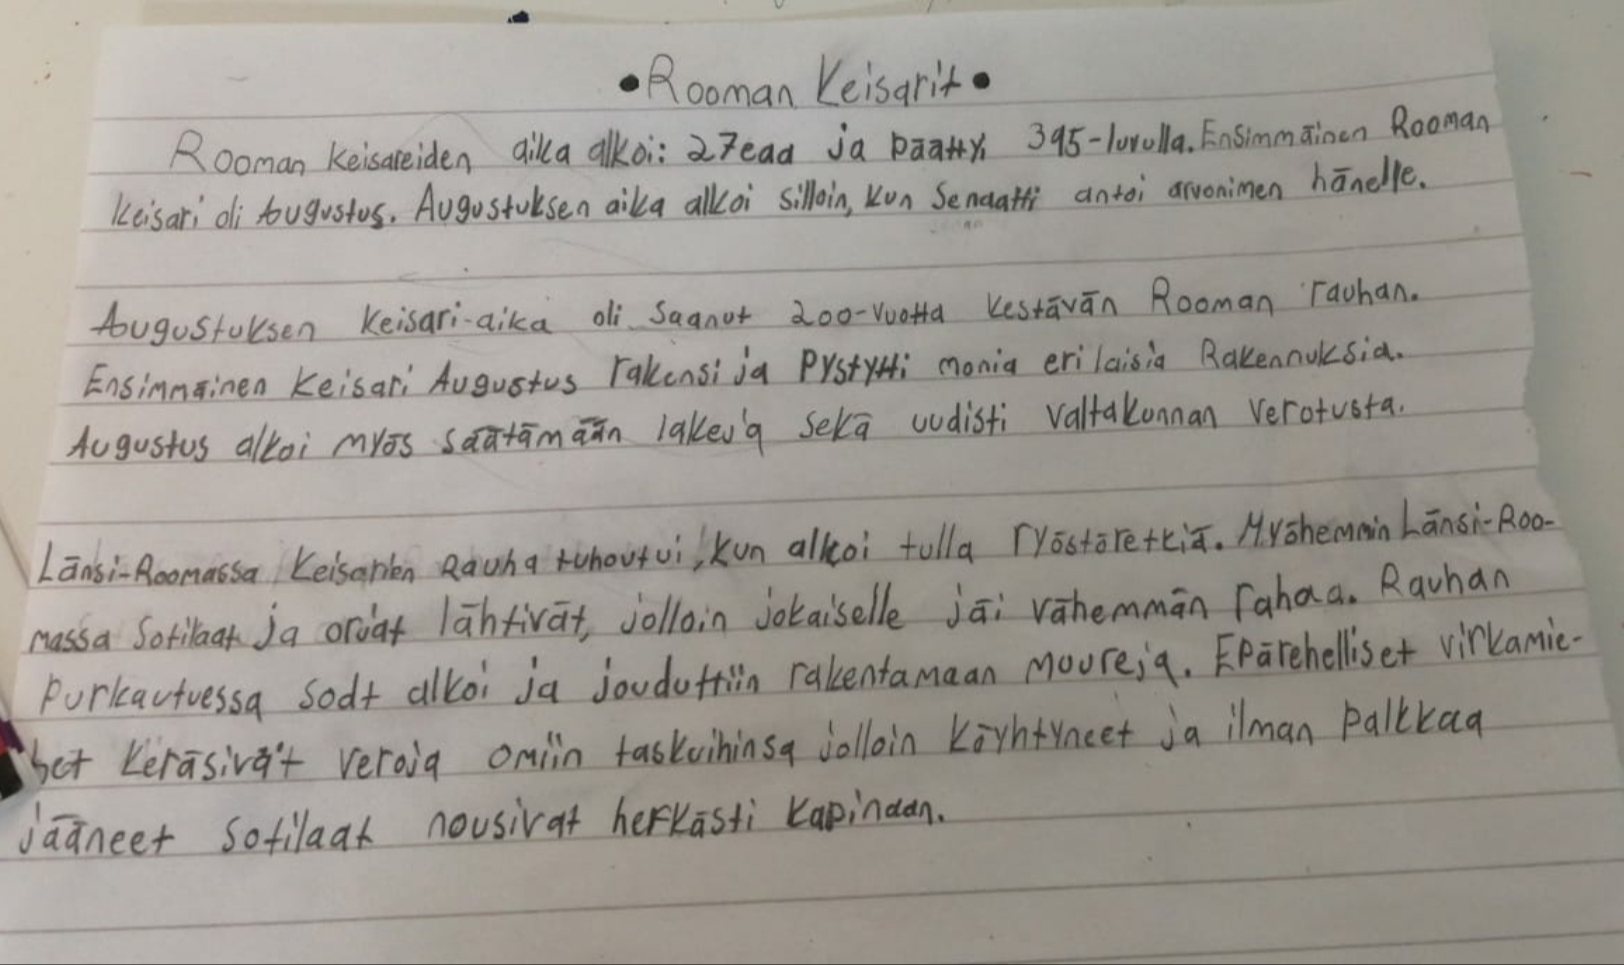 •Rooman Keisarit•
Rooman keisareiden aika alkoi: 27eaa ja päätty 395-luvulla. Ensimmäinen Rooman
keisari oli Augustus. Augustuksen aika alkoi silloin, kun Senaatti antoi arvonimen hänelle.
Augustuksen keisari-aika oli saanut 200-vuotta kestävän Rooman rauhan.
Ensimmäinen keisari Augustus rakensi ja Pystytti monia erilaisia Rakennuksia.
Augustus alkoi myös säätämään lakeja sekä uudisti valtakunnan verotusta.
Länsi-Roomassa Keisarien Rauha tuhoutui, kun alkoi tulla ryöstöretkiä. Myöhemmin Länsi-Roo-
massa Sotilaat ja orjat lähtivät, jolloin jokaiselle jäi vähemmän rahaa. Rauhan
Purkautuessa sodt alkoi ja jouduttiin rakentamaan muureja. Epärehelliset virkamie-
het keräsivät veroja omiin taskuihinsa jolloin köyhtyneet ja ilman palkkaa
jääneet sotilaat nousivat herkästi kapinaan.